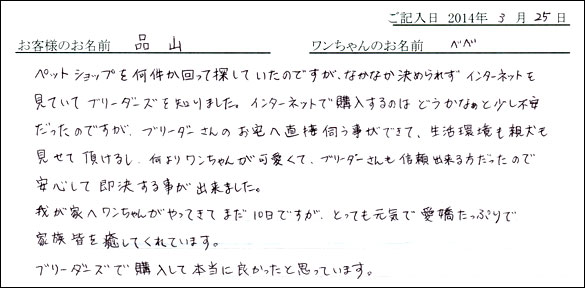 ご記入日 2014年 3 月 25 日
お客様のお名前 品 山 ワンちゃんのお名前 べべ
ペットショップを何件か回って探していたのですが、なかなか決められず インターネットを
見ていて ブリーダーズを知りました。インターネットで購入するのは どうかなぁと少し不安
だったのですが、ブリーダーさんの お宅へ直接伺う事ができて、生活環境も親犬も
見せて 頂けるし、何よりワンちゃんが可愛くて、ブリーダーさんも信頼出来る方だったので
安心して 即決する事が出来ました。
我が家へワンちゃんがやってきて まだ 10日ですが、とっても元気で 愛嬌たっぷりで
家族皆を癒してくれています。
ブリーダーズで購入して本当に良かったと思っています。